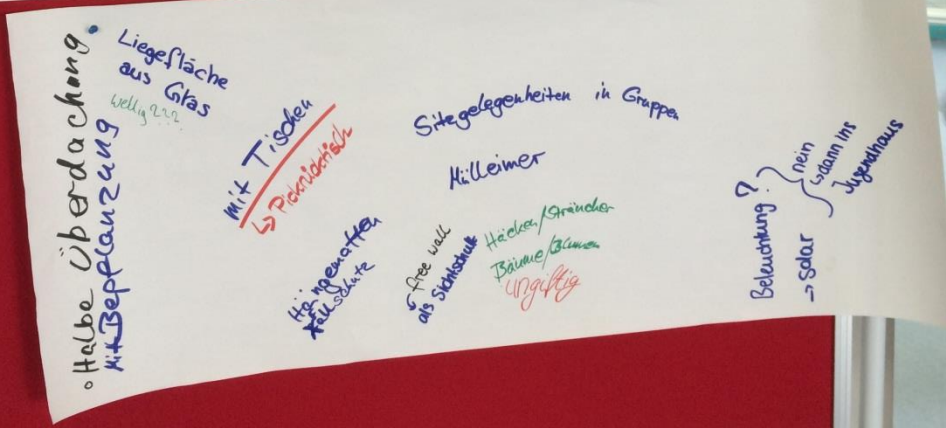 Halbe Überdachung
Mit Beplanzung
Liegefläche
aus Gras
wellig???
mit Tischen
↳ Picknicktisch
Sitzgelegenheiten in Gruppen
Mülleimer
Hängematten
Fallschutz
free wall
als Sichtschutz
Häcken/Sträucher
Bäume/Blumen
ungiftig
Beleuchtung?
→ Solar
nein
↳ dann ins
Jugendhaus